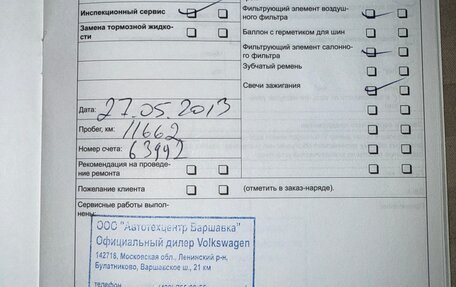 Инспекционный сервис
Замена тормозной жидко-
сти
Фильтрующий элемент воздуш-
ного фильтра
Баллон с герметиком для шин
Фильтрующий элемент салонно-
го фильтра
Зубчатый ремень
Свечи зажигания
Дата: 27.05.2013
Пробег, км: 11662
Номер счета: 63992
Рекомендация на проведе-
ние ремонта
Пожелание клиента (отметить в заказ-наряде).
Сервисные работы выпол-
нены:
ООО "Автотехцентр Варшавка"
Официальный дилер Volkswagen
142718, Московская обл., Ленинский р-н,
Булатниково, Варшавское ш., 21 км
телефон